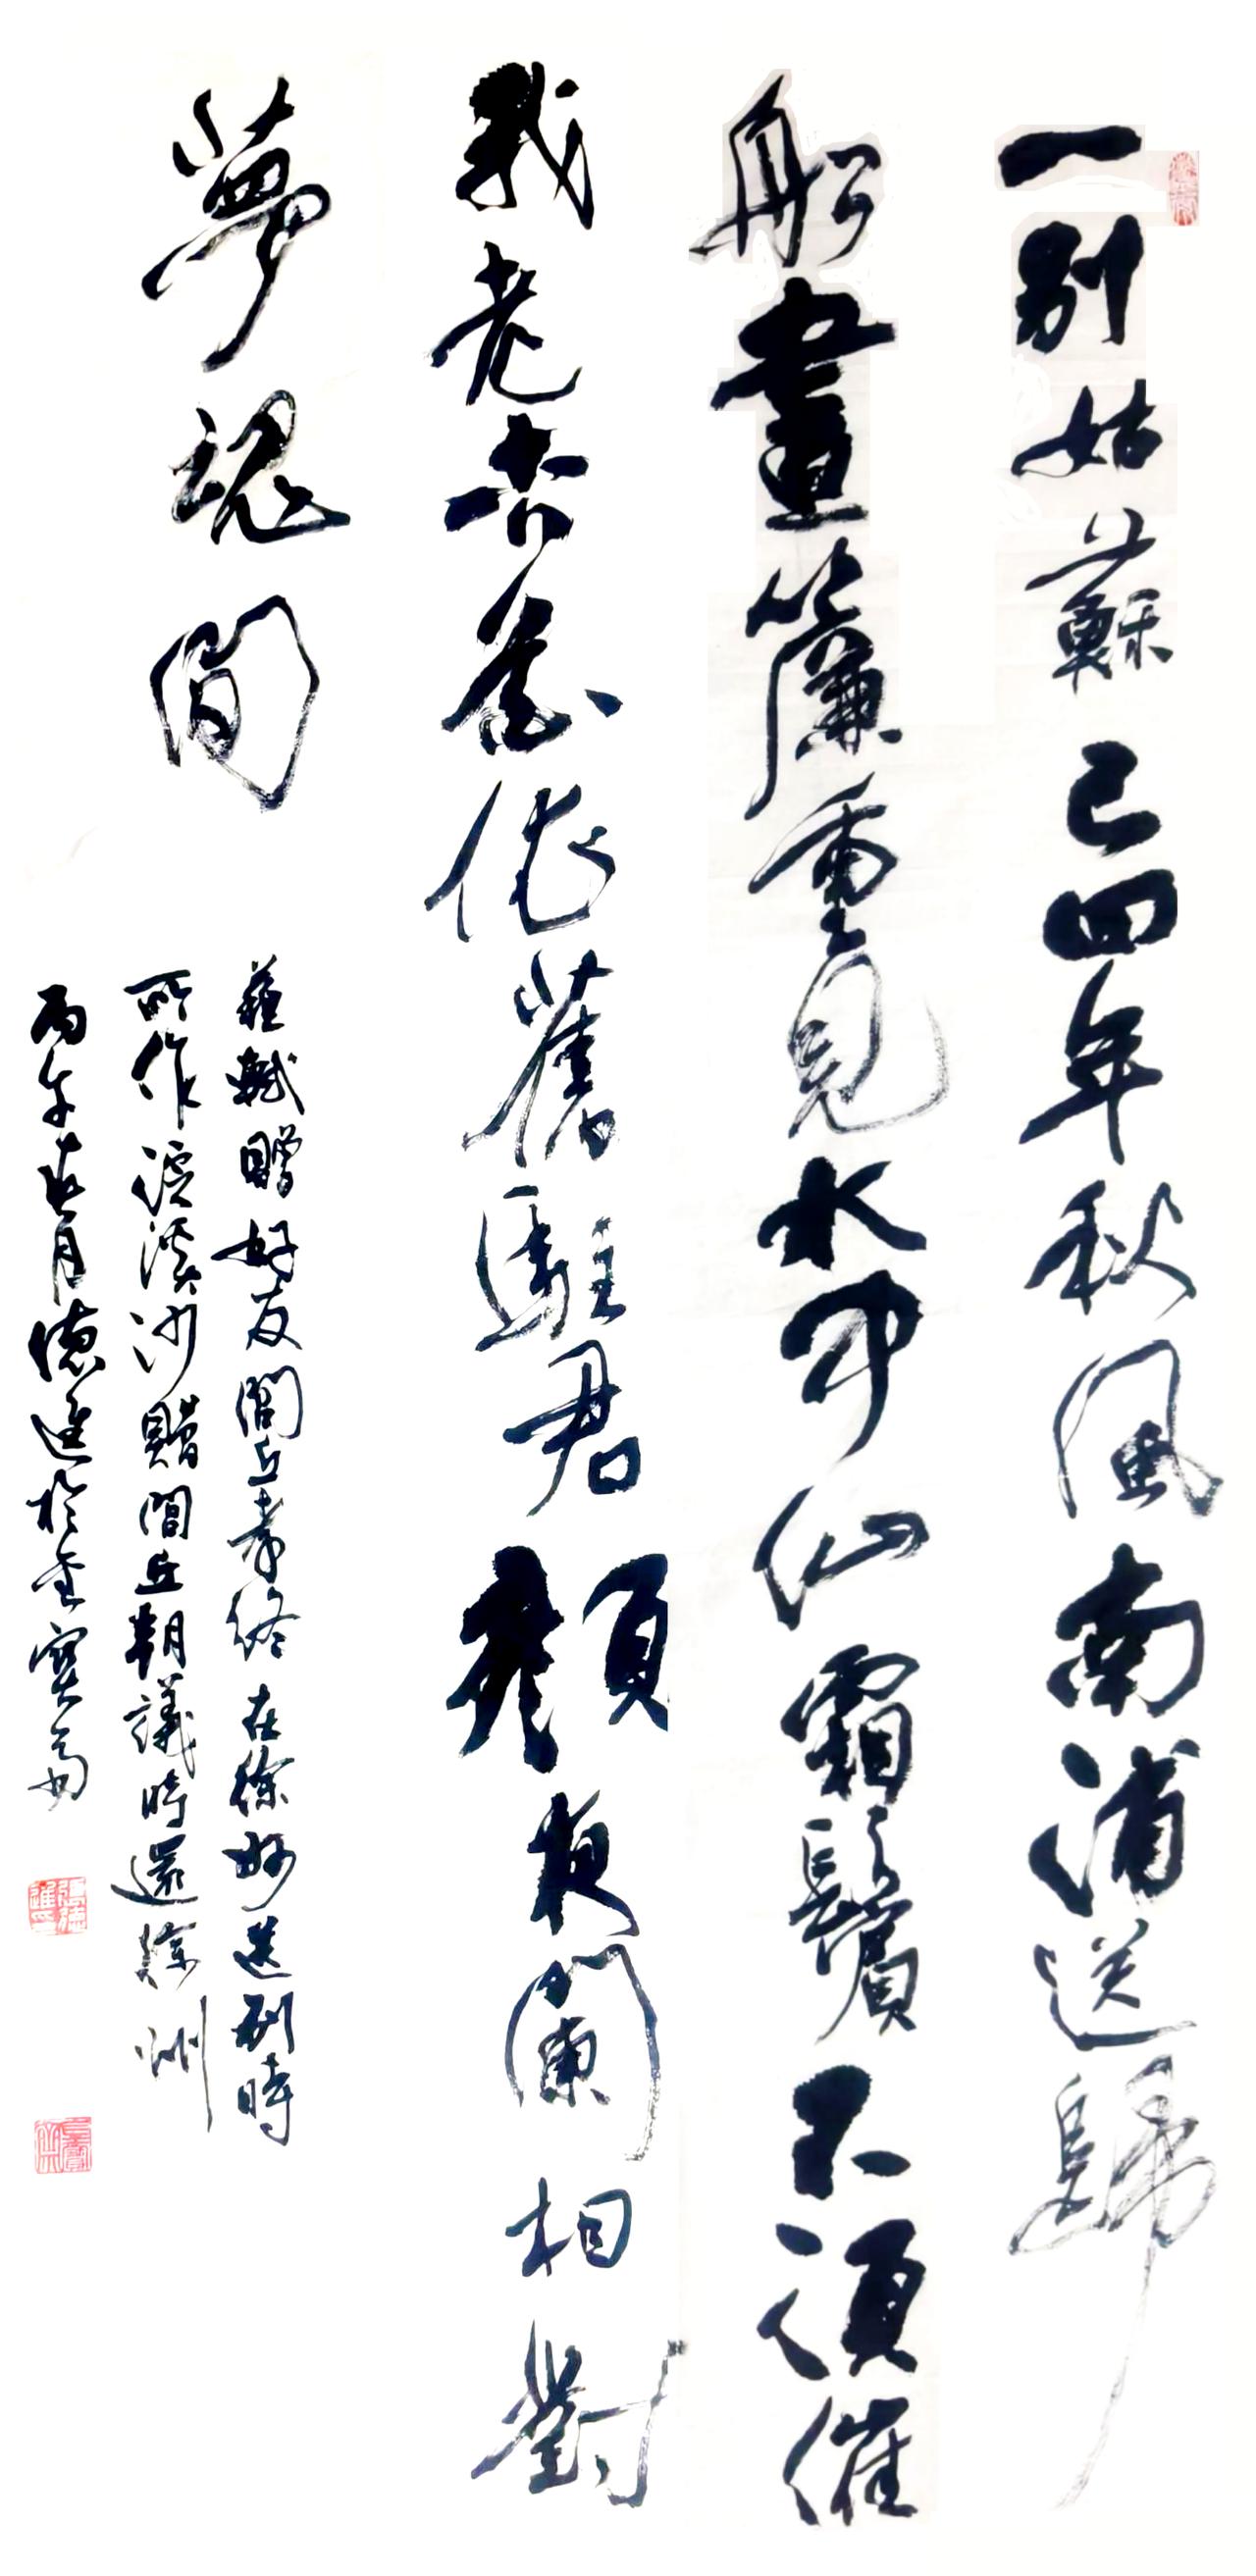 一別姑蘇已四年秋風南浦送歸
船畫簾重見水中仙霜鬢不須催
我老杏花依舊駐君顏夜闌相對
夢魂間
蘇軾贈好友閭丘孝終在徐送別時
所作浣溪沙贈閭丘朝議時還徐州
丙午春月德進於寶齋
張德進印